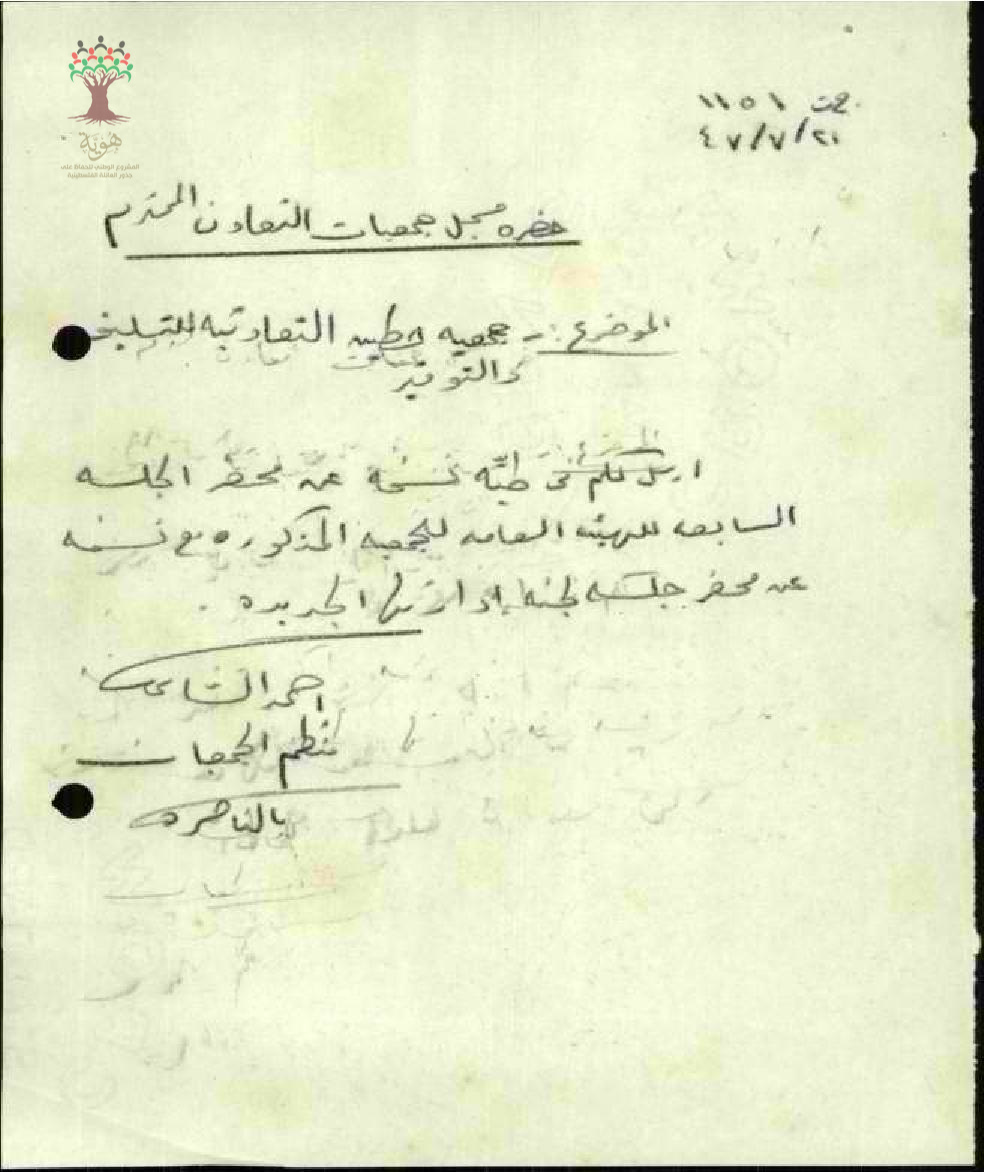 هوية
المشروع الوطني للحفاظ على
جذور العائلة الفلسطينية
١١٥١
٢١/٧/٤٧
حضره مسجل جمعيات التعاون المحترم
الموضوع :- جمعيه حطين التعاونيه للتسليف
والتوفير
ارسل لكم في طيّه نسخة عن محضر الجلسه
السابعه للهيئه العامه للجمعيه المذكوره مع نسخه
عن محضر جلسه لجنه ادارتها الجديده .
احمد الشا
منظم الجمعيات
بالناصره